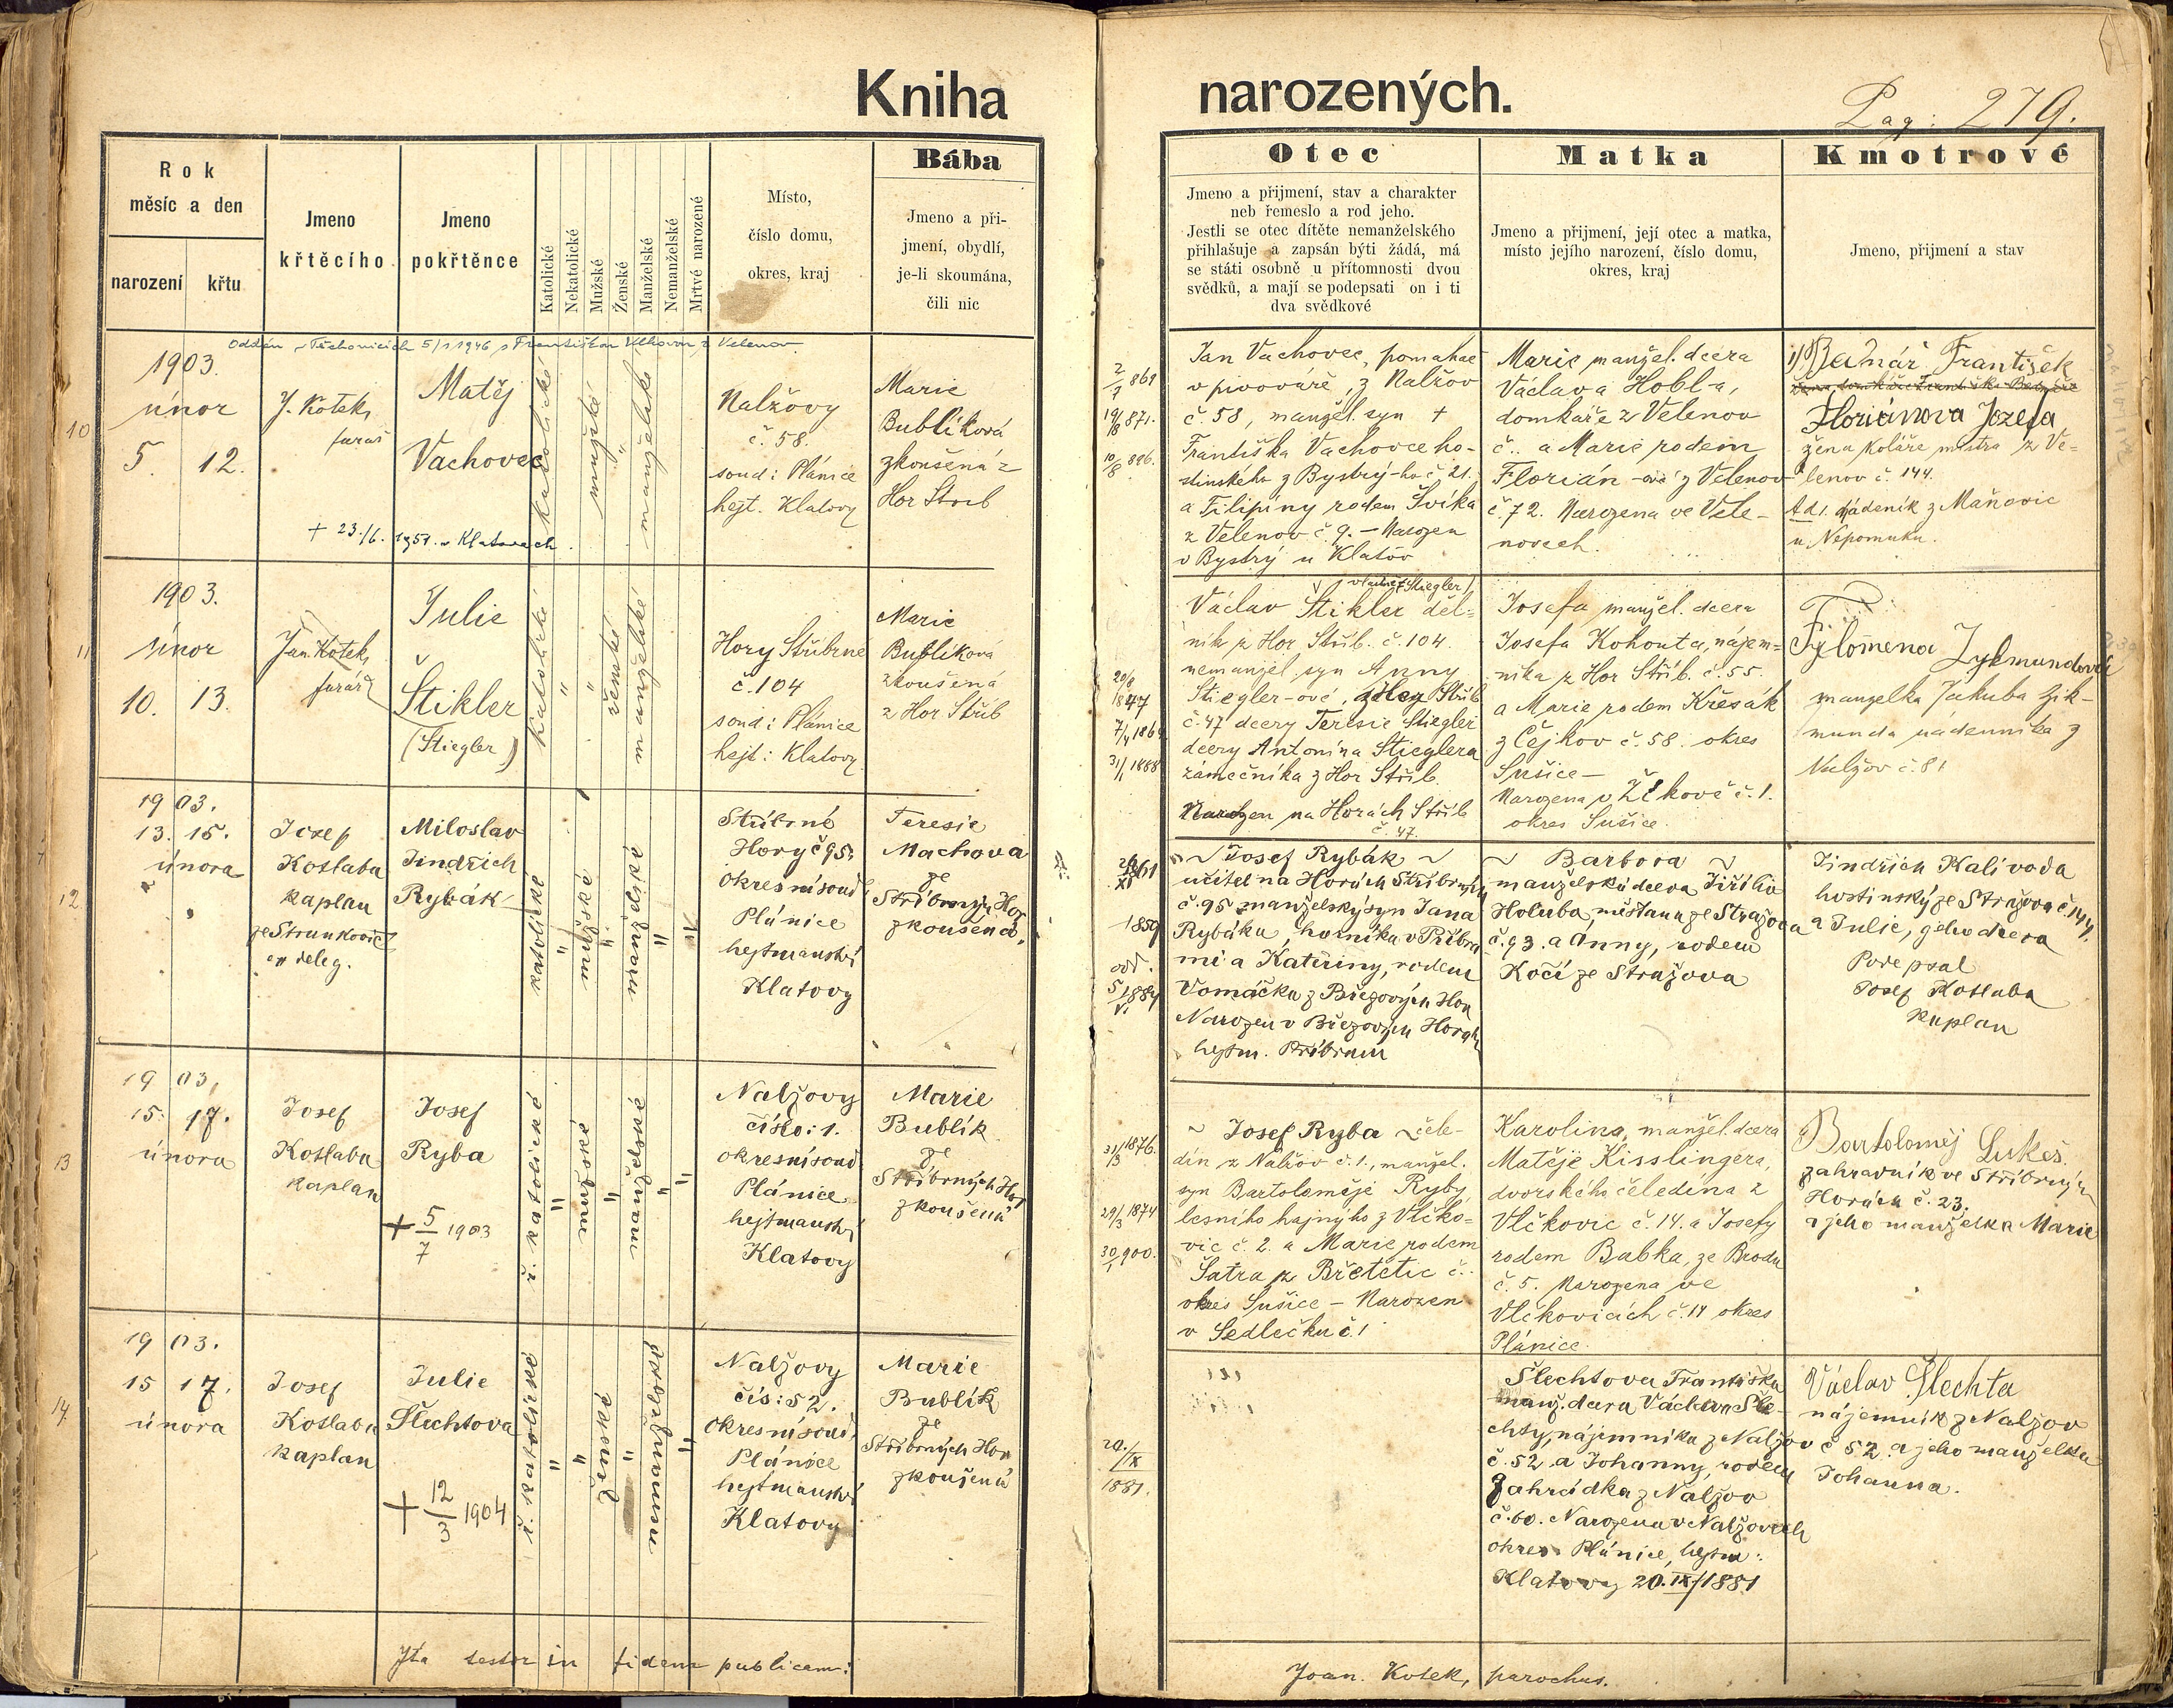 Kniha narozených.
Pag: 279.
Rok
měsíc a den
narození
křtu
Jmeno
křtěcího
Jmeno
pokřtěnce
Katolické
Nekatolické
Mužské
Ženské
Manželské
Nemanželské
Mrtvé narozené
Místo,
číslo domu,
okres, kraj
Bába
Jmeno a při-
jmení, obydlí,
je-li skoumána,
čili nic
Otec
Jmeno a přijmení, stav a charakter
neb řemeslo a rod jeho.
Jestli se otec dítěte nemanželského
přihlašuje a zapsán býti žádá, má
se státi osobně u přítomnosti dvou
svědků, a mají se podepsati on i ti
dva svědkové
Matka
Jmeno a přijmení, její otec a matka,
místo jejího narození, číslo domu,
okres, kraj
Kmotrové
Jmeno, přijmení a stav
Oddán v Těchonicích 5/1 1946 s Františkou Vlkovou z Velenov
10
1903.
únor
5. 12.
J. Kotek,
farář
Matěj
Vachovec
+ 23./6. 1951. v Klatovech
katolické
mužské
"
manželské
Nalžovy
č. 58.
soud: Plánice
hejt. Klatovy
Marie
Bublíková
zkoušená z
Hor Stříb
2/7 869
19/8 871.
10/8 896.
Jan Vachovec, pomahač
v pivováře, z Nalžov
č. 58, manžel. syn +
Františka Vachovce ho-
stinského z Bystrý-ho č 21.
a Filipíny rodem Švíka
z Velenov č. 9. – Narozen
v Bystrý u Klatov
Marie manžel. dcera
Václava Hobl-a,
domkaře z Velenov
č.. a Marie rodem
Florián -ové z Velenov
č. 72. Narozena ve Vele-
novech.
1) Bednář František
Floriánova Jozefa
žena Koláře mistra z Ve-
lenov č. 144.
Ad 1. nádeník z Maňovic
u Nepomuku.
11
1903.
únor
10. 13.
Jan Kotek,
farář
Julie
Štikler
(Stiegler)
katolické
"
"
ženské
manželské
Hory Stříbrné
č. 104
soud: Plánice
hejt: Klatovy
Marie
Bublíková
zkoušená
z Hor Stříb
20/8 847
7/4 1864
31/1 1888
vlastně (Stiegler)
Václav Štikler děl-
ník z Hor Stříb. č. 104.
nemanžel. syn Anny
Stiegler-ové, z Hor Stříb
č. 47 dcery Teresie Stiegler
dcery Antonína Stieglera
zámečníka z Hor Stříb.
Narozen na Horách Stříb
č. 47.
Josefa, manžel. dcera
Josefa Kohouta, nájem-
níka z Hor Stříb. č. 55.
a Marie rodem Křesák
z Čejkov č. 58. okres
Sušice –
Narozena v Žíkově č. 1.
okres Sušice.
Fylomena Zykmundová
manželka Jakuba Zik-
munda nádenníka z
Nalžov č. 81
12
1903.
13. 15.
února
Josef
Kostaba
kaplan
ze Strunkovic
ex deleg.
Miloslav
Jindřich
Rybák
katolické
"
mužské
"
manželské
"
Stříbrné
Hory č 95.
okresní soud
Plánice
hejtmanství
Klatovy
Teresie
Machova
ze
Stříbrných Hor
zkoušená.
1859
odd.
~ Josef Rybák ~
učitel na Horách Stříbrných
č. 95 manželský syn Jana
Rybáka, horníka v Příbra
mi a Kateřiny, rodem
Vomáčka z Březových Hor
Narozen v Březových Horách
hejtm. Příbram
~ Barbora ~
manželská dcera Jiřího
Holuba, měšťana ze Stražova
č. 93. a Anny, rodem
Kočí ze Stražova
Jindřich Kalivoda
hostinský ze Stražova č. 144.
a Julie, jeho dcera
Podepsal
Josef Kostaba
kaplan
13
1903,
15. 17.
února
Josef
Kostaba
kaplan
Josef
Ryba
+ 5/7 1903
ř. katolické
"
mužské
"
manželské
"
"
Nalžovy
číslo: 1.
okresní soud
Plánice
hejtmanství
Klatovy
Marie
Bublík
ze
Stříbrných Hor
zkoušená
31/3 1876.
29/3 1874
30/1 900.
~ Josef Ryba ~ čele-
dín z Nalžov č. 1., manžel.
syn Bartoloměje Ryby
lesního hajného z Vlčko-
vic č. 2. a Marie rodem
Šatra z Břetětic č..
okres Sušice – Narozen
v Sedlečku č. 1
Karolina, manžel. dcera
Matěje Kisslingera,
dvorského čeledína z
Vlčkovic č. 14. a Josefy
rodem Babka, ze Brodu
č. 5. Narozena ve
Vlčkovicích č. 14 okres
Plánice.
Bartoloměj Lukeš.
zahradník ve Stříbrných
Horách č. 23.
a jeho manželka Marie
14.
1903.
15 17.
února
Josef
Kostaba
kaplan
Julie
Šlechtova
+ 12/3 1904
ř. katolické
"
"
ženské
"
nemanželské
"
Nalžovy
čís: 52.
okresní soud,
Plánice
hejtmanství
Klatovy
Marie
Bublík
ze
Stříbrných Hor
zkoušená
20./IX
1881.
Šlechtova Františka
manž. dcera Václava Šle-
chty, nájemníka z Nalžov
č. 52 a Johanny, rodem
Zahrádka z Nalžov
č. 60. Narozena v Nalžovech
okres Plánice, hejtm:
Klatovy 20. IX/1881
Václav Šlechta
nájemník z Nalžov
č 52. a jeho manželka
Johanna.
Ita testor in fidem publicam:
Joan. Kotek, parochus.